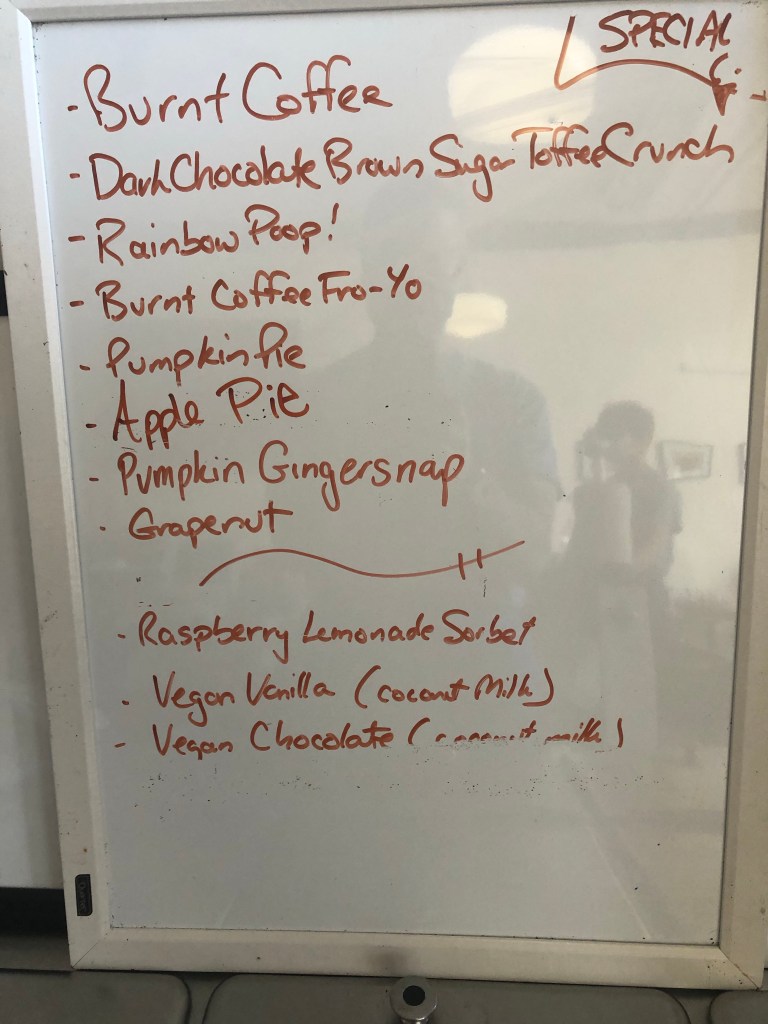 SPECIAL
- Burnt Coffee
- Dark Chocolate Brown Sugar Toffee Crunch
- Rainbow Poop!
- Burnt Coffee Fro-Yo
- Pumpkin Pie
- Apple Pie
- Pumpkin Gingersnap
- Grapenut
- Raspberry Lemonade Sorbet
- Vegan Vanilla (coconut Milk)
- Vegan Chocolate (coconut milk)